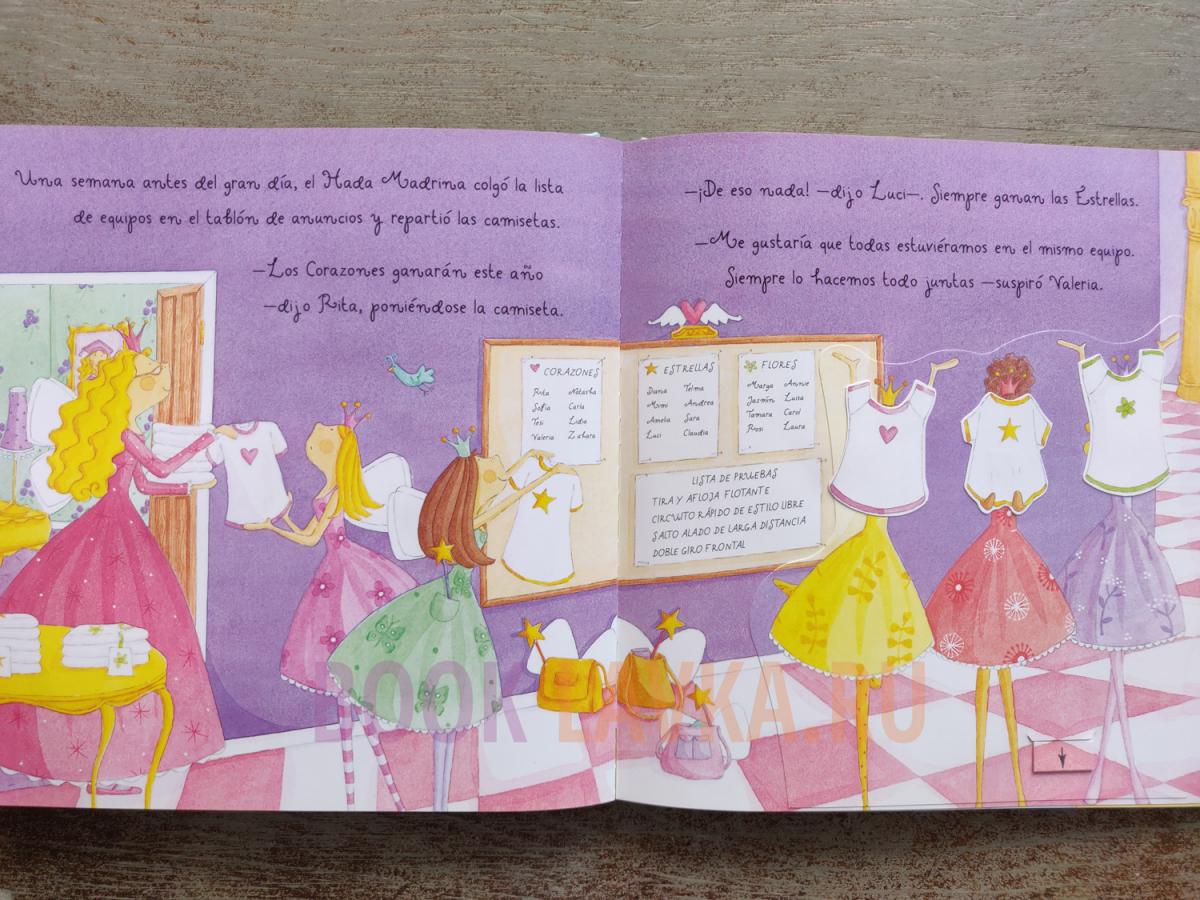 Una semana antes del gran día, el Hada Madrina colgó la lista
de equipos en el tablón de anuncios y repartió las camisetas.
—Los Corazones ganarán este año
—dijo Rita, poniéndose la camiseta.
CORAZONES
Rita Natasha
Sofía Carla
Tesi Lidia
Valeria Zahara
—¡De eso nada! —dijo Luci—. Siempre ganan las Estrellas.
—Me gustaría que todas estuviéramos en el mismo equipo.
Siempre lo hacemos todo juntas —suspiró Valeria.
ESTRELLAS
Diana Telma
Mimi Andrea
Amelia Sara
Luci Claudia
FLORES
Marga Annie
Jasmín Luisa
Tamara Carol
Rosi Laura
LISTA DE PRUEBAS
TIRA Y AFLOJA FLOTANTE
CIRCUITO RÁPIDO DE ESTILO LIBRE
SALTO ALADO DE LARGA DISTANCIA
DOBLE GIRO FRONTAL
BOOK LAVKA.RU